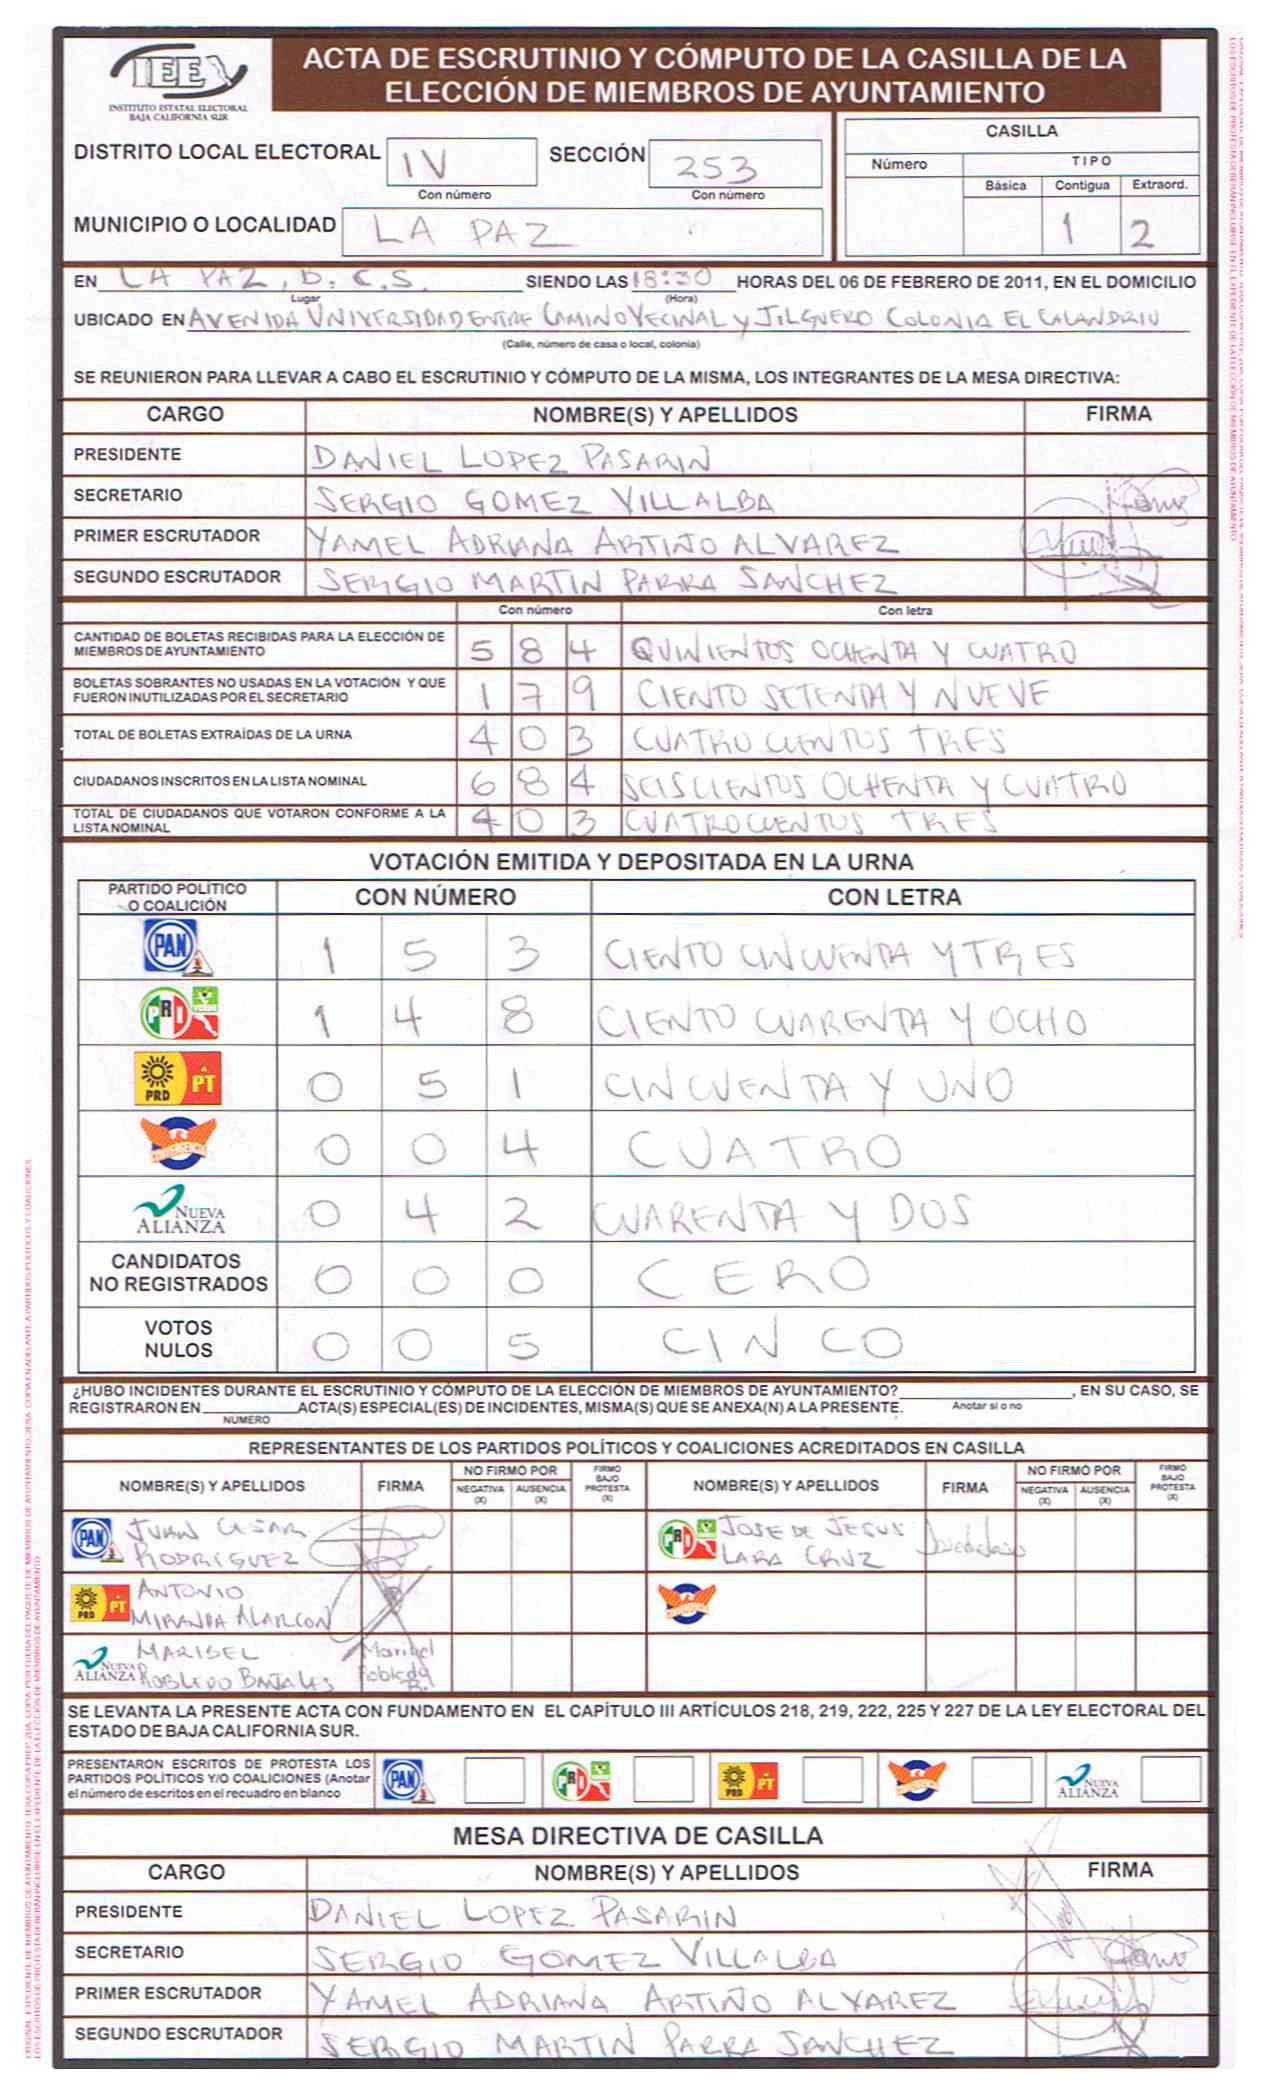 IEE
INSTITUTO ESTATAL ELECTORAL
BAJA CALIFORNIA SUR
ACTA DE ESCRUTINIO Y CÓMPUTO DE LA CASILLA DE LA
ELECCIÓN DE MIEMBROS DE AYUNTAMIENTO
DISTRITO LOCAL ELECTORAL IV SECCIÓN 253
Con número Con número
MUNICIPIO O LOCALIDAD LA PAZ
CASILLA
Número TIPO
Básica Contigua Extraord.
1 2
EN LA PAZ, B.C.S. SIENDO LAS 18:30 HORAS DEL 06 DE FEBRERO DE 2011, EN EL DOMICILIO
Lugar (Hora)
UBICADO EN AVENIDA UNIVERSIDAD ENTRE CAMINO VECINAL Y JILGUERO COLONIA EL CALANDRIO
(Calle, número de casa o local, colonia)
SE REUNIERON PARA LLEVAR A CABO EL ESCRUTINIO Y CÓMPUTO DE LA MISMA, LOS INTEGRANTES DE LA MESA DIRECTIVA:
CARGO NOMBRE(S) Y APELLIDOS FIRMA
PRESIDENTE DANIEL LOPEZ PASARIN
SECRETARIO SERGIO GOMEZ VILLALBA
PRIMER ESCRUTADOR YAMEL ADRIANA ARTIÑO ALVAREZ
SEGUNDO ESCRUTADOR SERGIO MARTIN PARRA SANCHEZ
Con número Con letra
CANTIDAD DE BOLETAS RECIBIDAS PARA LA ELECCIÓN DE
MIEMBROS DE AYUNTAMIENTO 5 8 4 QUINIENTOS OCHENTA Y CUATRO
BOLETAS SOBRANTES NO USADAS EN LA VOTACIÓN Y QUE
FUERON INUTILIZADAS POR EL SECRETARIO 1 7 9 CIENTO SETENTA Y NUEVE
TOTAL DE BOLETAS EXTRAÍDAS DE LA URNA 4 0 3 CUATROCIENTOS TRES
CIUDADANOS INSCRITOS EN LA LISTA NOMINAL 6 8 4 SEISCIENTOS OCHENTA Y CUATRO
TOTAL DE CIUDADANOS QUE VOTARON CONFORME A LA
LISTA NOMINAL 4 0 3 CUATROCIENTOS TRES
VOTACIÓN EMITIDA Y DEPOSITADA EN LA URNA
PARTIDO POLÍTICO
O COALICIÓN CON NÚMERO CON LETRA
PAN 1 5 3 CIENTO CINCUENTA Y TRES
PRI VERDE 1 4 8 CIENTO CUARENTA Y OCHO
PRD PT 0 5 1 CINCUENTA Y UNO
CONVERGENCIA 0 0 4 CUATRO
NUEVA ALIANZA 0 4 2 CUARENTA Y DOS
CANDIDATOS
NO REGISTRADOS 0 0 0 CERO
VOTOS
NULOS 0 0 5 CINCO
¿HUBO INCIDENTES DURANTE EL ESCRUTINIO Y CÓMPUTO DE LA ELECCIÓN DE MIEMBROS DE AYUNTAMIENTO? , EN SU CASO, SE
REGISTRARON EN ACTA(S) ESPECIAL(ES) DE INCIDENTES, MISMA(S) QUE SE ANEXA(N) A LA PRESENTE. Anotar si o no
NÚMERO
REPRESENTANTES DE LOS PARTIDOS POLÍTICOS Y COALICIONES ACREDITADOS EN CASILLA
NOMBRE(S) Y APELLIDOS FIRMA NO FIRMÓ POR NEGATIVA (X) AUSENCIA (X) FIRMÓ BAJO PROTESTA (X) NOMBRE(S) Y APELLIDOS FIRMA NO FIRMÓ POR NEGATIVA (X) AUSENCIA (X) FIRMÓ BAJO PROTESTA (X)
PAN JUAN CESAR RODRIGUEZ PRI JOSE DE JESUS LARA CRUZ
PRD PT ANTONIO MIRANDA ALARCON CONVERGENCIA
NUEVA ALIANZA MARISEL ROBLEDO BAÑALES Maribel Robledo B.
SE LEVANTA LA PRESENTE ACTA CON FUNDAMENTO EN EL CAPÍTULO III ARTÍCULOS 218, 219, 222, 225 Y 227 DE LA LEY ELECTORAL DEL
ESTADO DE BAJA CALIFORNIA SUR.
PRESENTARON ESCRITOS DE PROTESTA LOS
PARTIDOS POLÍTICOS Y/O COALICIONES (Anotar
el número de escritos en el recuadro en blanco
PAN PRI PRD PT CONVERGENCIA NUEVA ALIANZA
MESA DIRECTIVA DE CASILLA
CARGO NOMBRE(S) Y APELLIDOS FIRMA
PRESIDENTE DANIEL LOPEZ PASARIN
SECRETARIO SERGIO GOMEZ VILLALBA
PRIMER ESCRUTADOR YAMEL ADRIANA ARTIÑO ALVAREZ
SEGUNDO ESCRUTADOR SERGIO MARTIN PARRA SANCHEZ